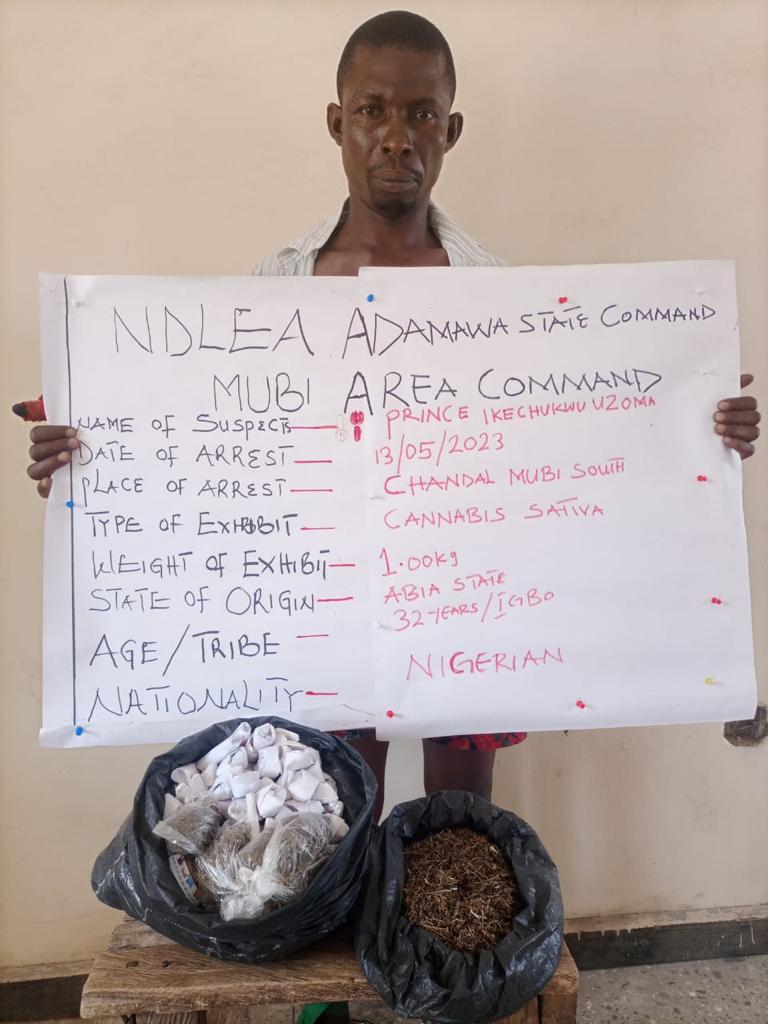 NDLEA ADAMAWA STATE COMMAND
MUBI AREA COMMAND
NAME OF SUSPECTS — PRINCE IKECHUKWU UZOMA
DATE OF ARREST — 13/05/2023
PLACE OF ARREST — CHANDAL MUBI SOUTH
TYPE OF EXHIBIT — CANNABIS SATIVA
WEIGHT OF EXHIBIT — 1.00KG
STATE OF ORIGIN — ABIA STATE
AGE/TRIBE — 32 YEARS/IGBO
NATIONALITY — NIGERIAN